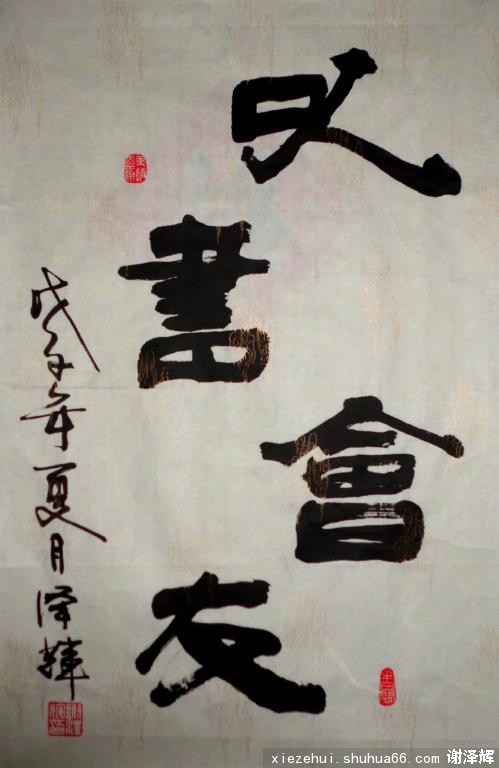 以書會友
戊子年夏月泽辉
xiezehui.shuhua66.com 谢泽辉